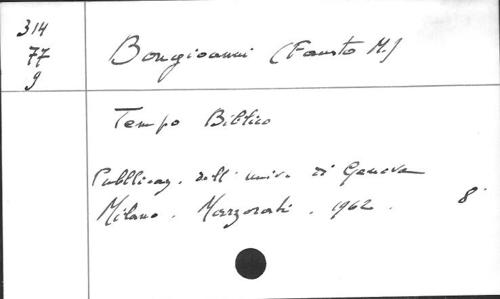 314
77
9
Bongioanni (Fausto M.)
Tempo Biblico
Pubblicaz. dell' univ. di Genova
Milano. Marzorati. 1962. 8°